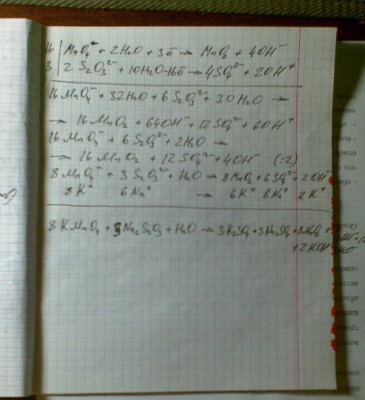 16 | MnO₄⁻ + 2H₂O + 3ē → MnO₂ + 4OH⁻
3 | 2 S₂O₃²⁻ + 10H₂O - 16ē → 4SO₄²⁻ + 20H⁺
16 MnO₄⁻ + 32H₂O + 6 S₂O₃²⁻ + 30 H₂O →
→ 16 MnO₂ + 64OH⁻ + 12SO₄²⁻ + 60H⁺
16 MnO₄⁻ + 6 S₂O₃²⁻ + 2H₂O →
→ 16 MnO₂ + 12 SO₄²⁻ + 4OH⁻ (:2)
8 MnO₄⁻ + 3 S₂O₃²⁻ + H₂O → 8 MnO₂ + 6SO₄²⁻ + 2OH⁻
8K⁺ 6Na⁺ → 6K⁺ 6Na⁺ 2K⁺
8 KMnO₄ + 3Na₂S₂O₃ + H₂O → 3K₂SO₄ + 3Na₂SO₄ + 8MnO₂ +
+ 2KOH